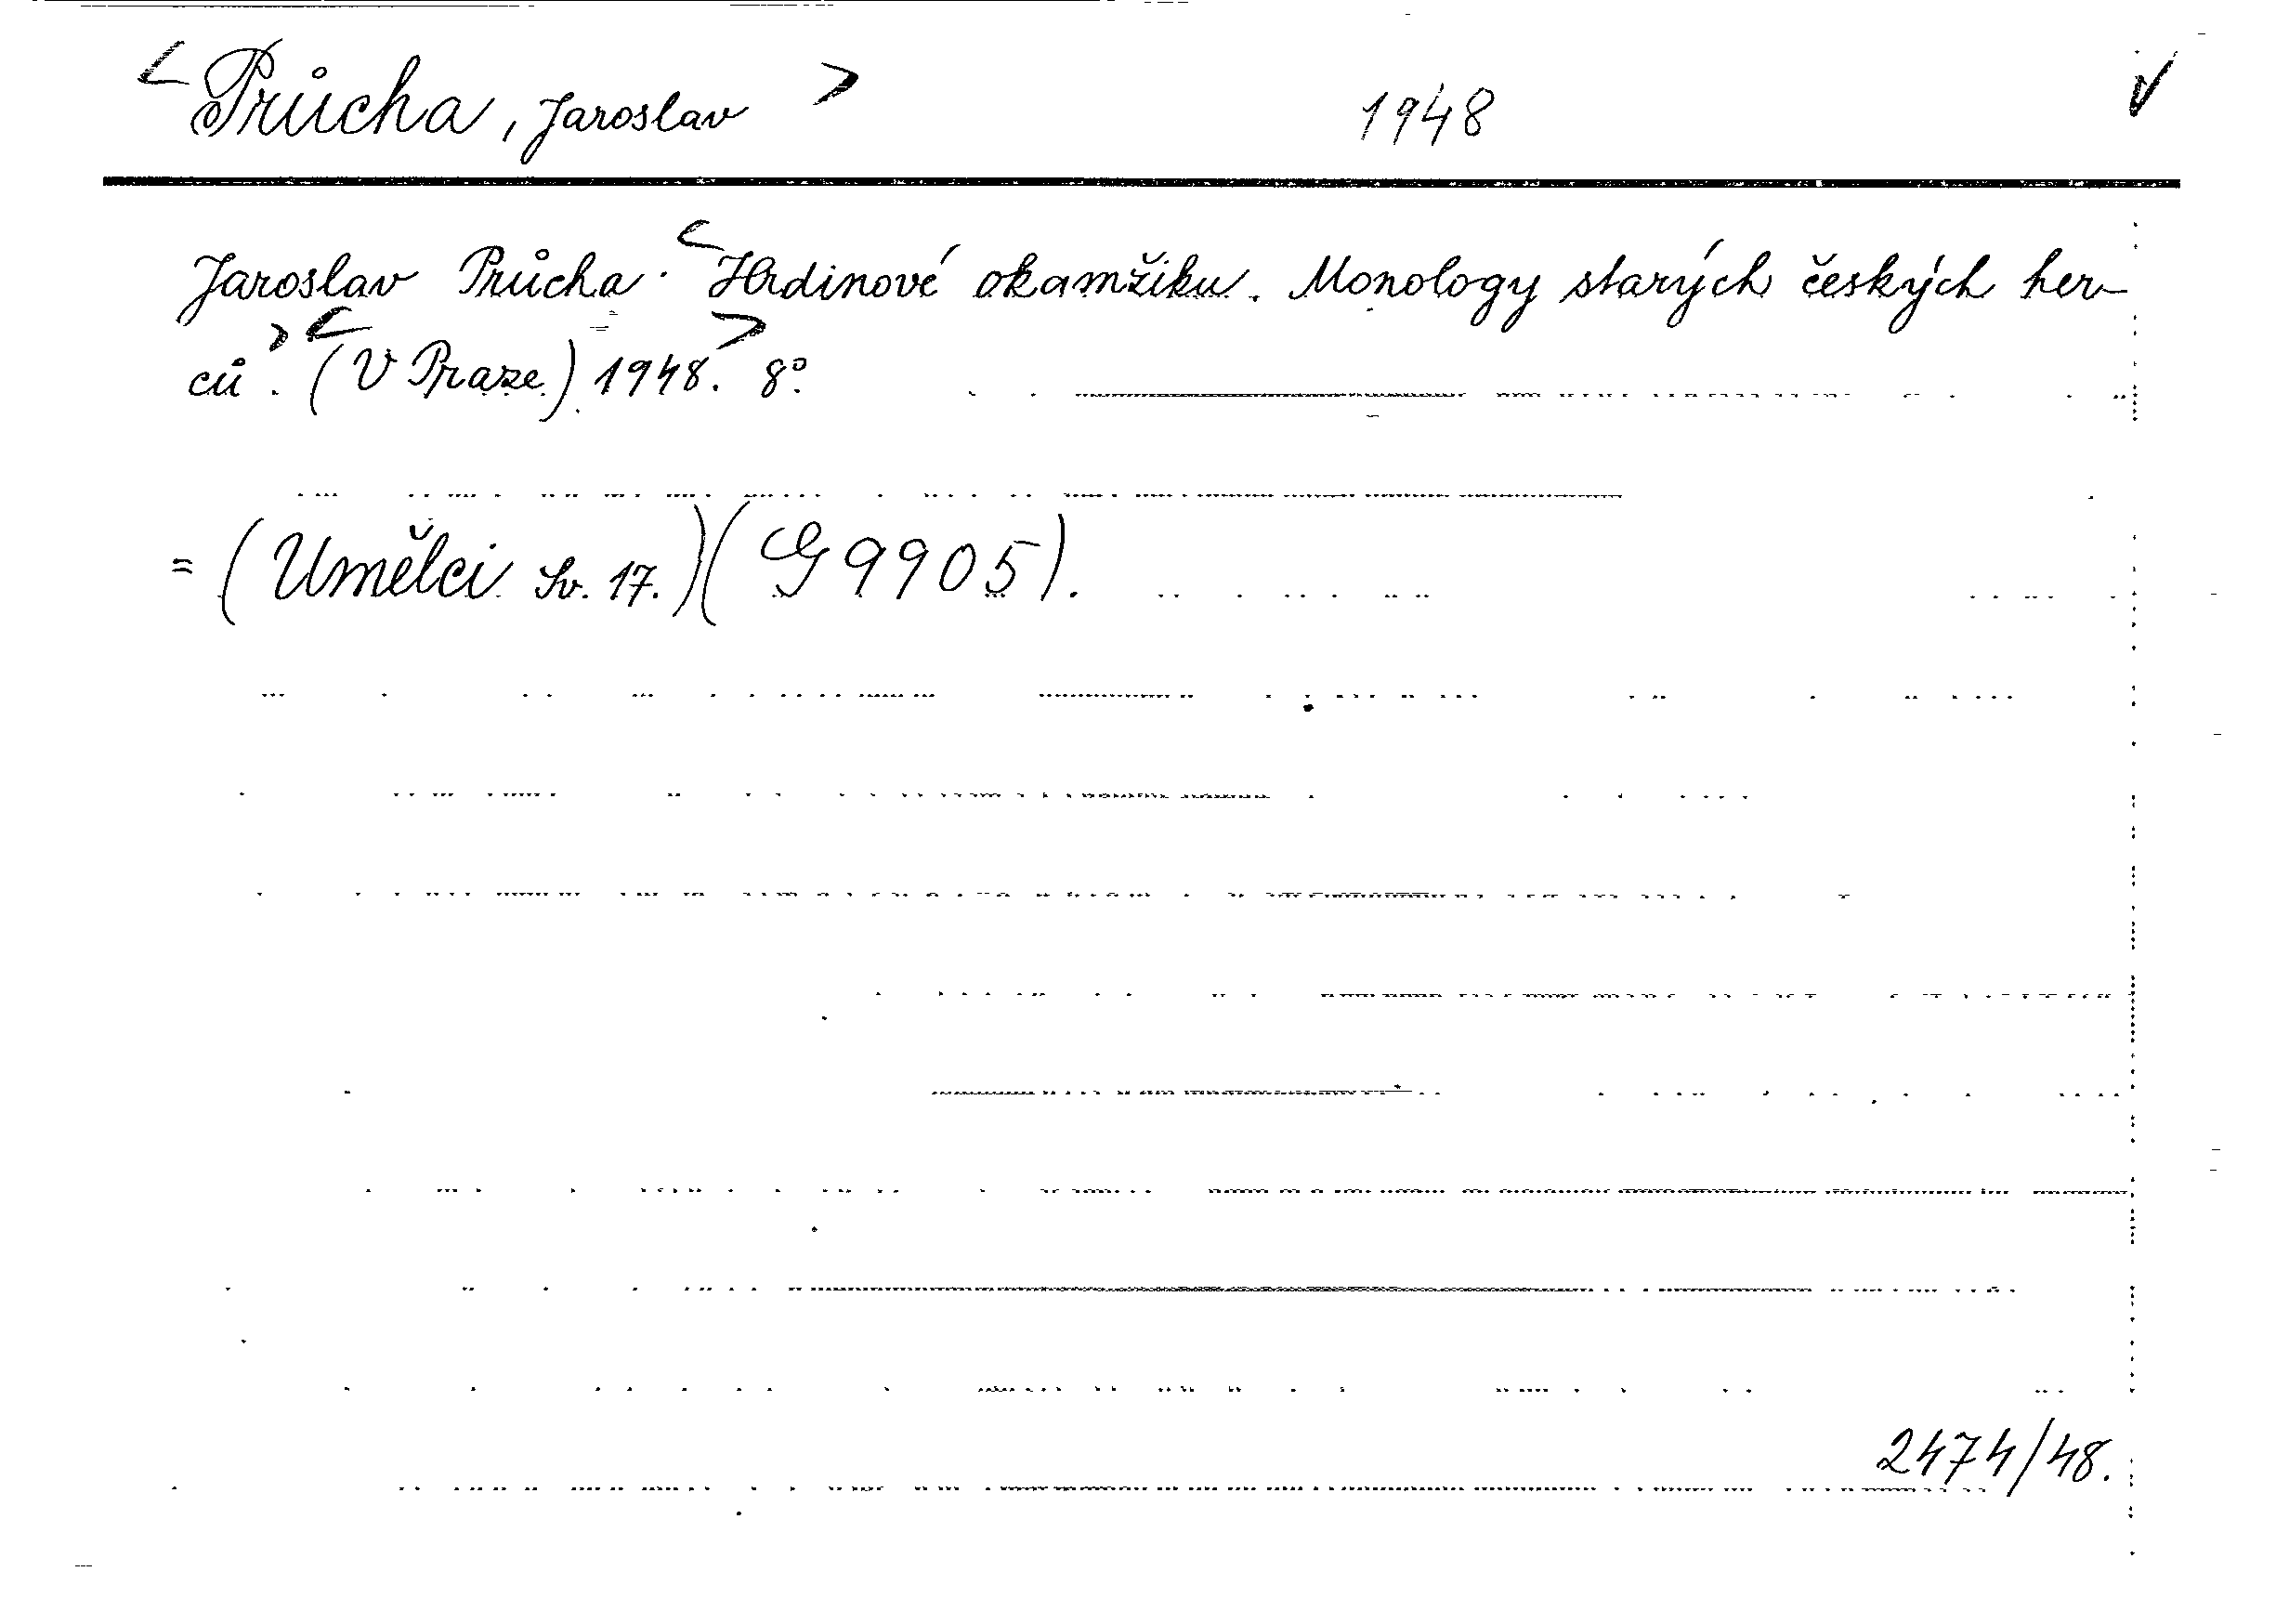 < Průcha, Jaroslav > 1948 √
Jaroslav Průcha. < Hrdinové okamžiku. Monology starých českých her-
ců >. < (V Praze) 1948. > 8°.
= (Umělci Sv. 17.) (G 9905).
2474/48.